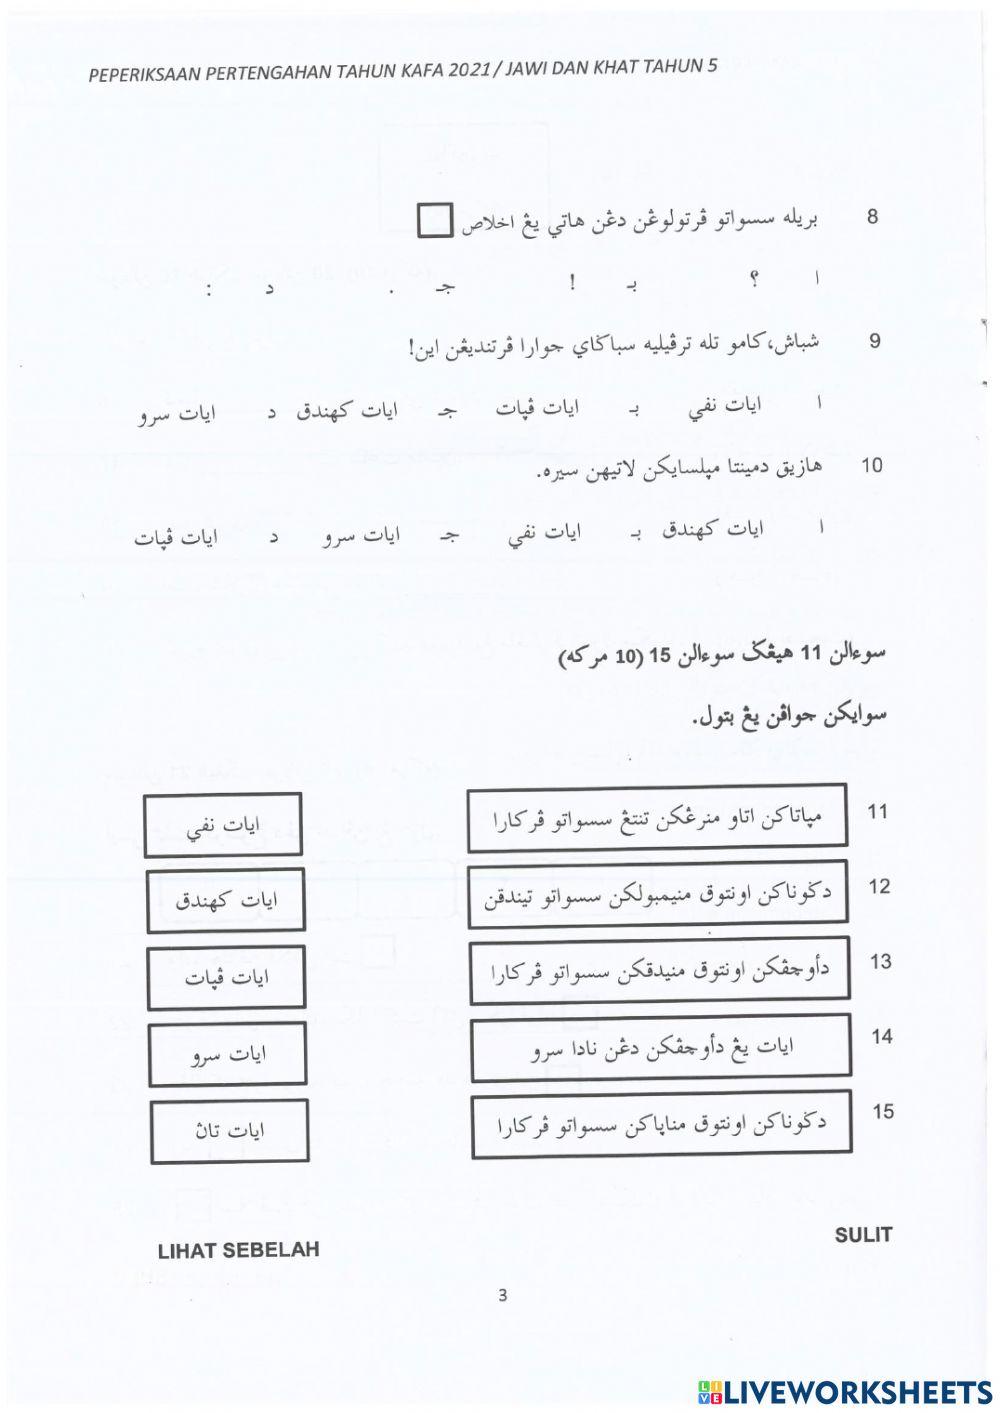 PEPERIKSAAN PERTENGAHAN TAHUN KAFA 2021 / JAWI DAN KHAT TAHUN 5
8 بريله سسواتو ڤرتولوڠن دڠن هاتي يڠ اخلاص
ا ؟ بـ ! جـ . د :
9 شباش،كامو تله ترڤيليه سباݢاي جوارا ڤرتنديڠن اين!
ا ايات نفي بـ ايات ڤڽات جـ ايات كهندق د ايات سرو
10 هازيق دمينتا مڽلسايكن لاتيهن سيره.
ا ايات كهندق بـ ايات نفي جـ ايات سرو د ايات ڤڽات
سوءالن 11 هيڠݢ سوءالن 15 (10 مركه)
سوايكن جواڤن يڠ بتول.
11 مڽاتاكن اتاو منرڠكن تنتڠ سسواتو ڤركارا
ايات نفي
12 دݢوناكن اونتوق منيمبولكن سسواتو تيندقن
ايات كهندق
13 دأوچڤكن اونتوق منيدقكن سسواتو ڤركارا
ايات ڤڽات
14 ايات يڠ دأوچڤكن دڠن نادا سرو
ايات سرو
15 دݢوناكن اونتوق مناڽاكن سسواتو ڤركارا
ايات تاڽ
SULIT
LIHAT SEBELAH
3
LIVEWORKSHEETS